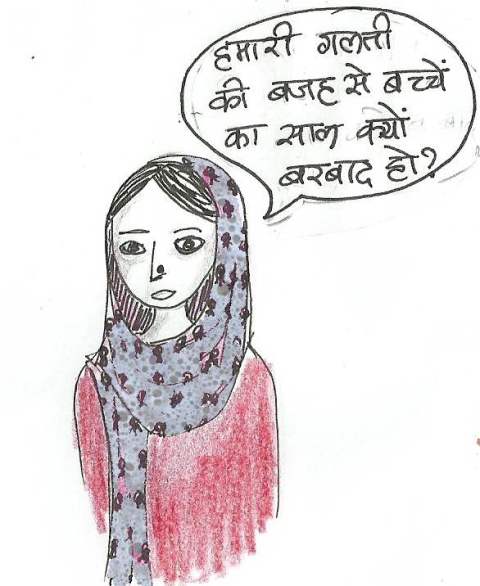 हमारी गलती
की बजह से बच्चें
का साल क्यों
बरबाद हो?